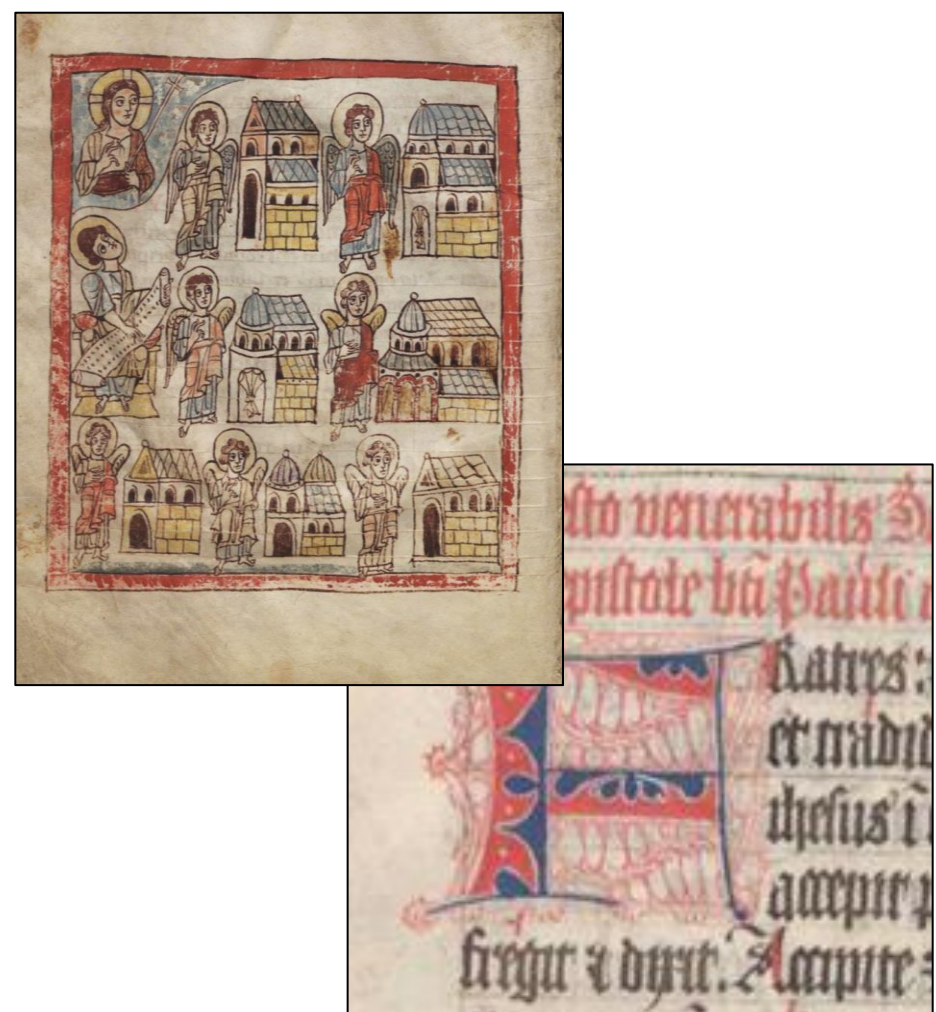 sto venerabilis
pistole bti Pauli
FRatres:
et tradid
ihesus i
accepit p
fregit ⁊ dixit. Accipite